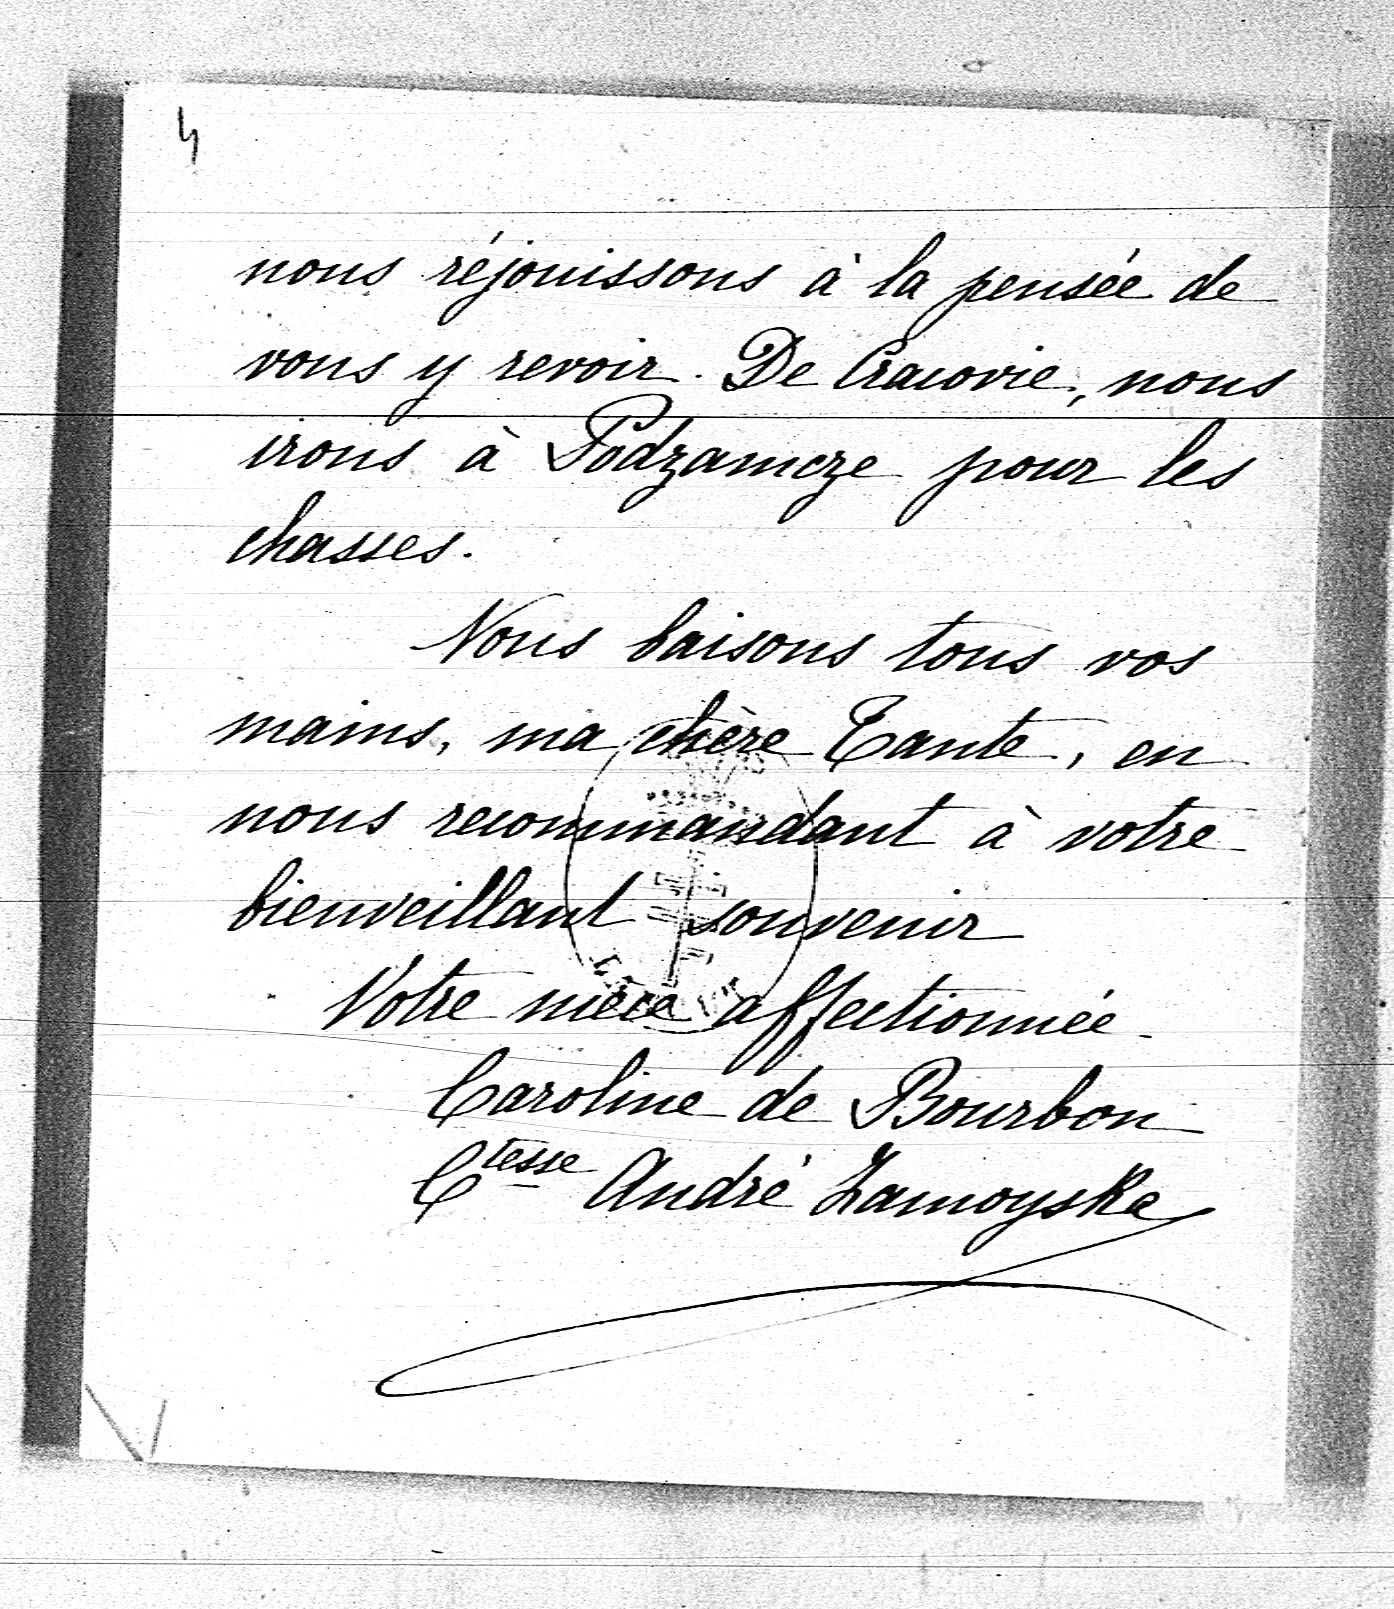 4
nous réjouissons à la pensée de
vous y revoir. De Cracovie, nous
irons à Podzamcze pour les
chasses.
Nous baisons tous vos
mains, ma chère Tante, en
nous recommandant à votre
bienveillant souvenir
Votre nièce affectionnée.
Caroline de Bourbon
Ctesse André Zamoyska